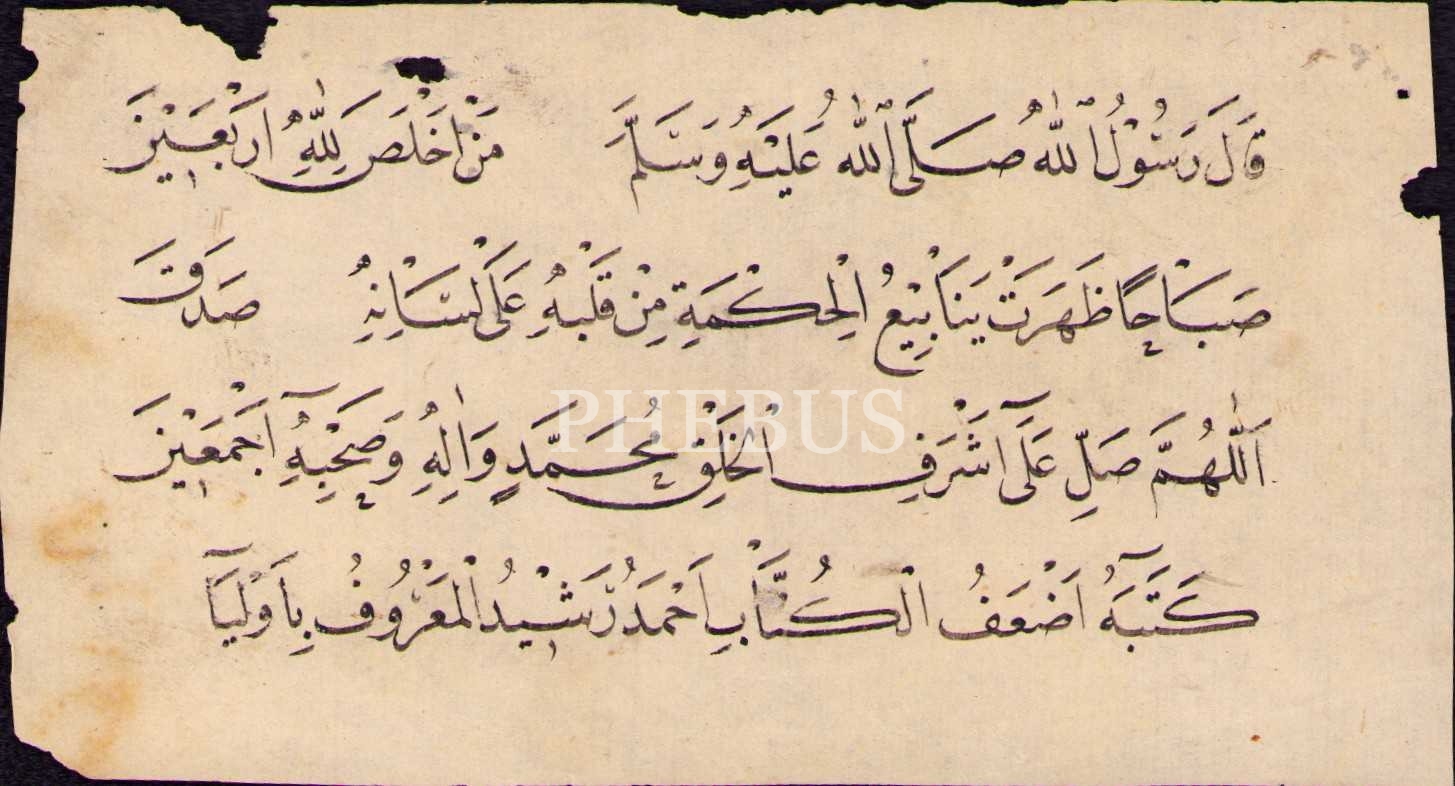 قَالَ رَسُوْلُ اللّٰهِ صَلَّى اللّٰهُ عَلَيْهِ وَسَلَّمَ مَنْ اَخْلَصَ لِلّٰهِ اَرْبَعِيْنَ
صَبَاحًا ظَهَرَتْ يَنَابِيْعُ الْحِكْمَةِ مِنْ قَلْبِهِ عَلَى لِسَانِهِ صَدَقَ
اَللّٰهُمَّ صَلِّ عَلَى اَشْرَفِ الْخَلْقِ مُحَمَّدٍ وَاٰلِهِ وَصَحْبِهِ اَجْمَعِيْنَ
PHEBUS
كَتَبَهُ اَضْعَفُ الْكُتَّابِ اَحْمَدُ رَشِيْدُ الْمَعْرُوفُ بِاَوْلِيَا